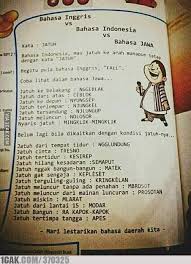 Bahasa Inggris
vs
Bahasa Indonesia
vs
Bahasa JAWA
Kata : JATUH
Bahasa Indonesia, mau jatuh ke arah manapun tetap dengan kata "JATUH"
Begitu pula bahasa Inggris, "FALL".
Coba lihat dalam bahasa Jawa...
Jatuh ke belakang : NGGEBLAK
Jatuh dari atas : CEBLOK
Jatuh ke depan : NYUNGSEP
Jatuh terlempar : NJUNGKEL
Jatuh
Jatuh meluncur : NDLOSOR
Nyaris jatuh : MINGKLIK MINGKLIK
Belum lagi bila dikaitkan dengan kondisi jatuh-nya..
Jatuh dari tempat tidur : NGGLUNDUNG
Jatuh cinta : TRESNO
Jatuh tertidur : KESIREP
Jatuh hilang kesadaran : SEMAPUT
Jatuh nggak bangun-bangun : MATEK
Jatuh gak sengaja : KEPLESET
Jatuh terguling-guling : KRINGKELAN
Jatuh meluncur tanpa ada penahan : MBRUSOT
Jatuh meluncur dari mainan luncuran : PROSOTAN
Jatuh miskin : MLARAT
Jatuh dari lantai 15 : MODAR
Jatuh Bangun : RA KAPOK-KAPOK
Jatuh tertimpa tangga : APES
- Mari lestarikan bahasa daerah kita -
1CAK.COM/370325